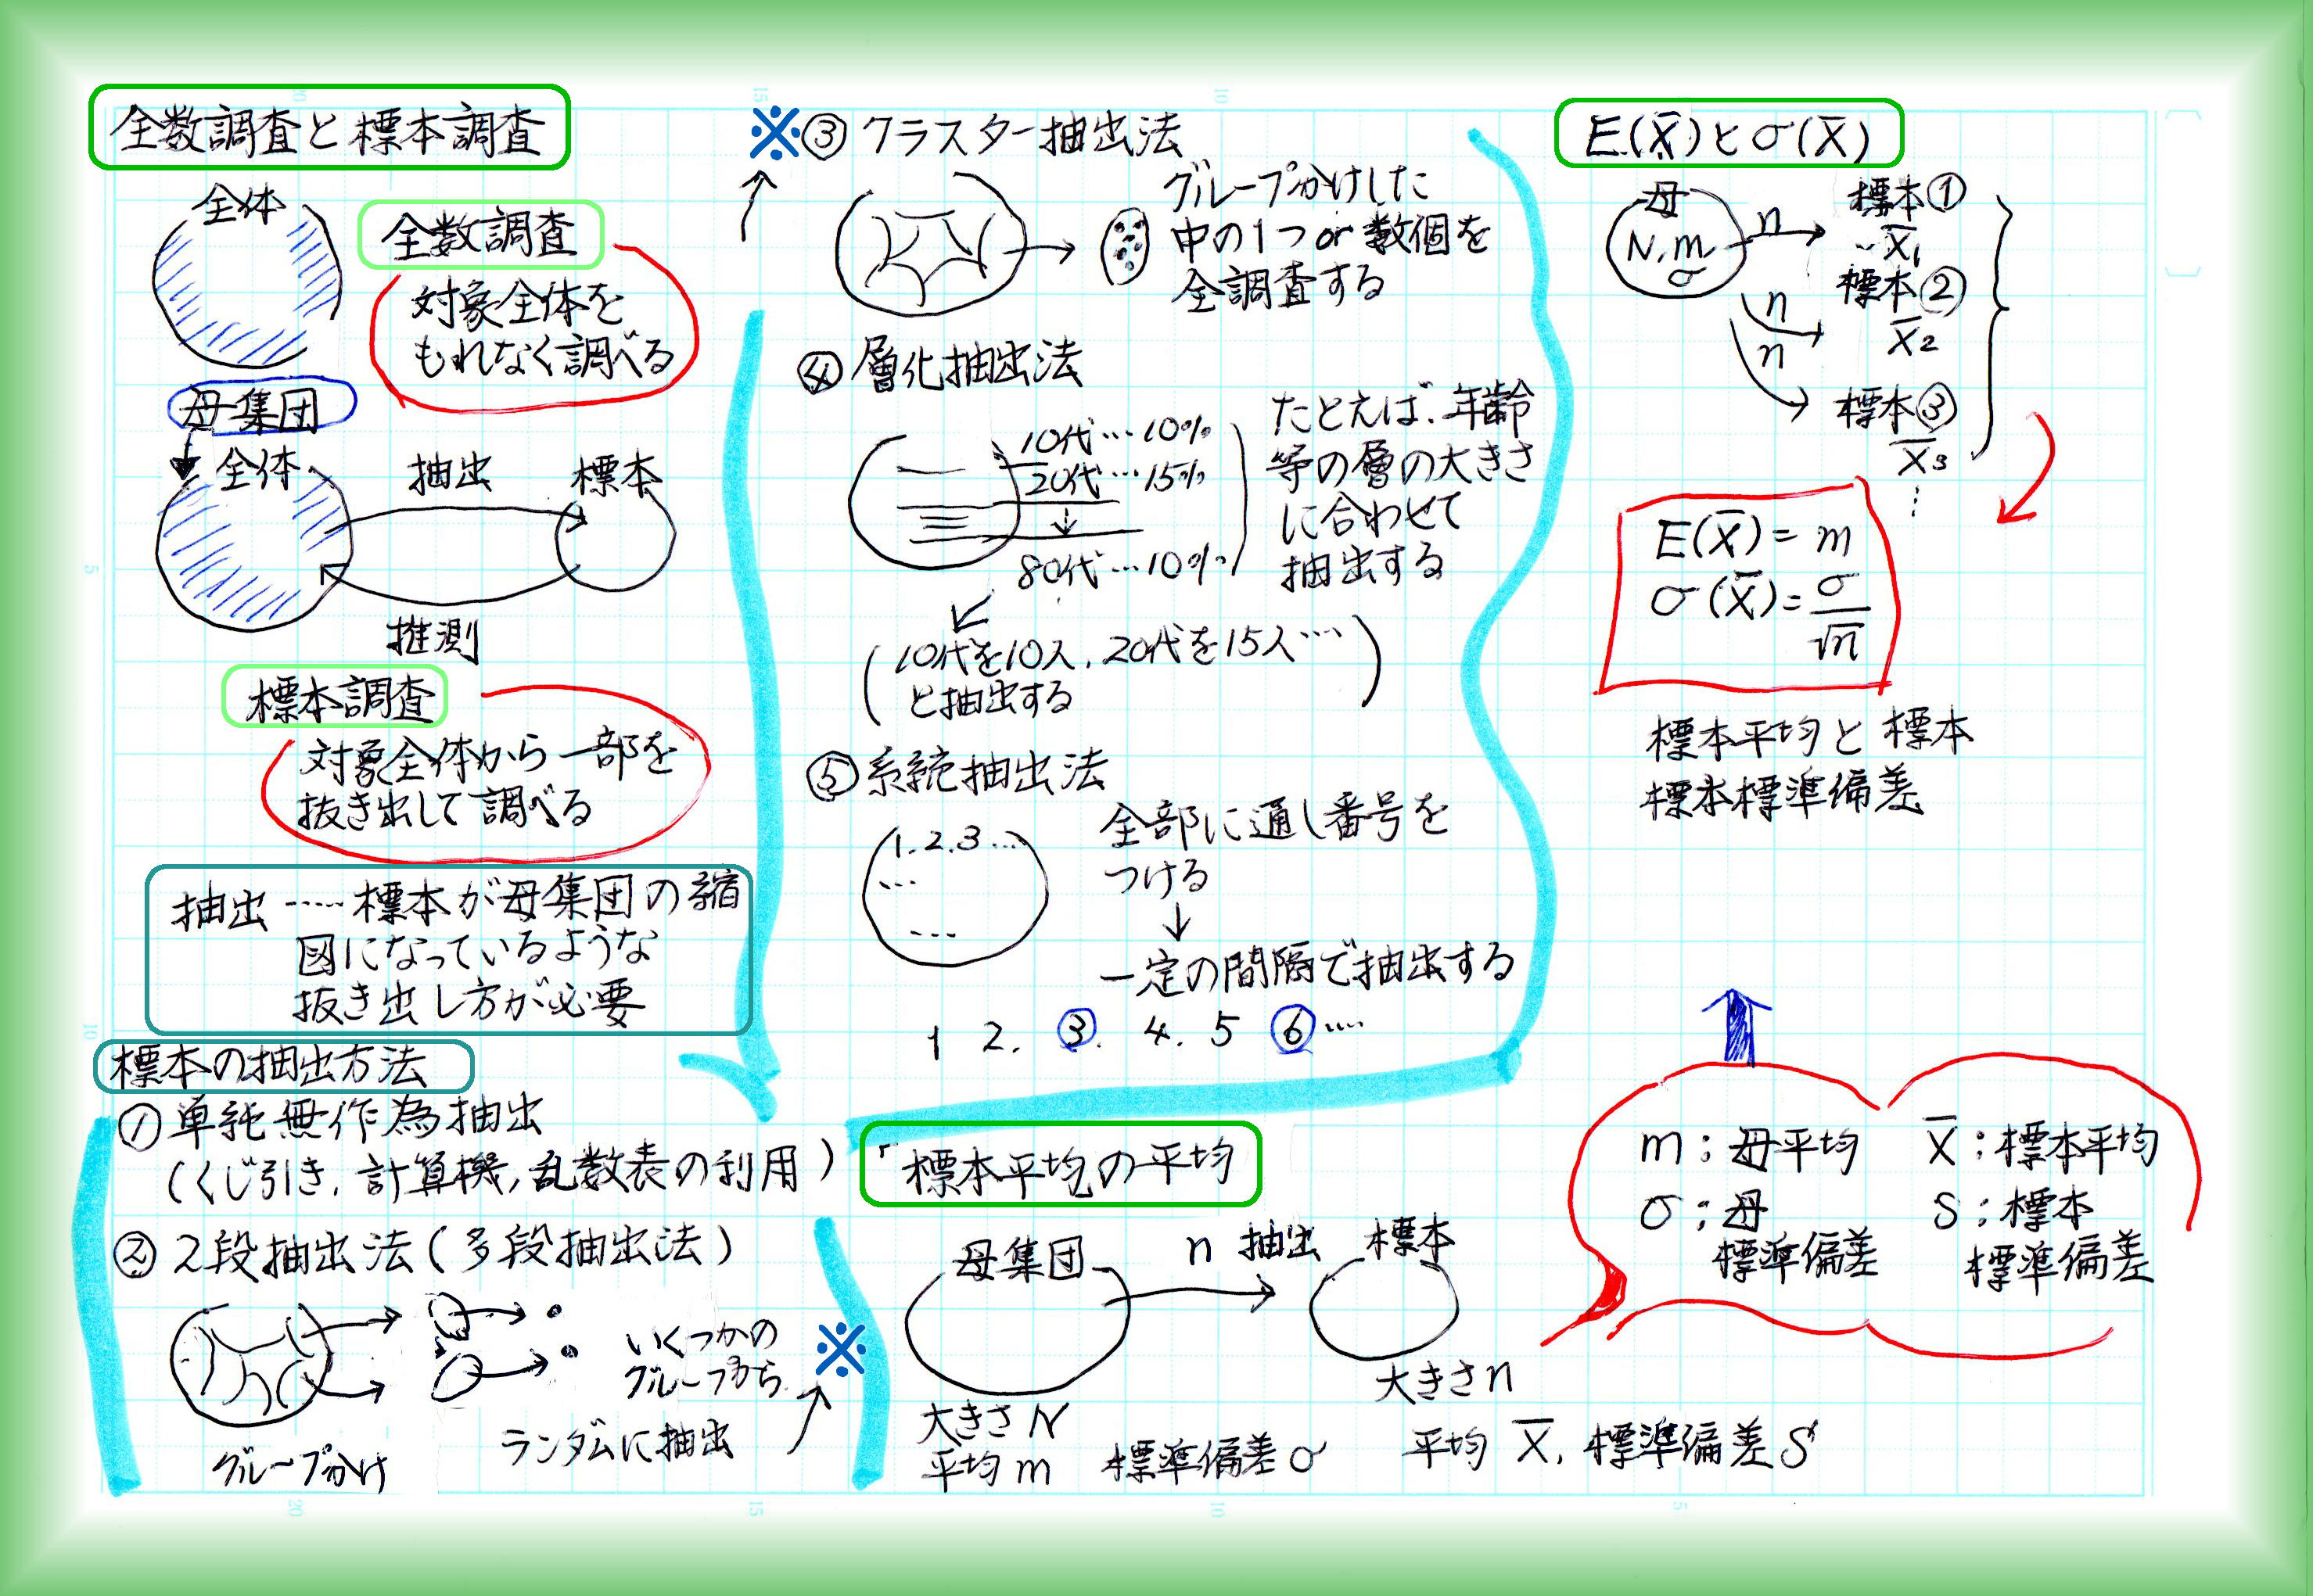 全数調査と標本調査
全体
全数調査
対象全体を
もれなく調べる
母集団
全体
抽出
標本
推測
標本調査
対象全体から一部を
抜き出して調べる
抽出……標本が母集団の縮
図になっているような
抜き出し方が必要
標本の抽出方法
①単純無作為抽出
(くじ引き,計算機,乱数表の利用)
②2段抽出法(多段抽出法)
いくつかの
グループから
ランダムに抽出
グループ分け
※
※③クラスター抽出法
グループ分けした
中の1つor数個を
全調査する
④層化抽出法
10代…10%
20代…15%
↓
80代…10%
たとえば、年齢
等の層の大きさ
に合わせて
抽出する
(10代を10人,20代を15人…
と抽出する)
⑤系統抽出法
1.2.3…
…
…
全部に通し番号を
つける
↓
一定の間隔で抽出する
1 2. ③. 4. 5 ⑥…
「標本平均の平均
母集団
n 抽出
標本
大きさn
大きさN
平均m 標準偏差σ
平均 X̄, 標準偏差S
E(X̄)とσ(X̄)
母
N,m
σ
n
標本①
X̄1
n
標本②
X̄2
n
標本③
X̄3
⋮
E(X̄)=m
σ(X̄)=σ/√n
標本平均と標本
標本標準偏差
m:母平均 X̄:標本平均
σ:母 S:標本
標準偏差 標準偏差
20
15
10
5
10
20
15
10
5